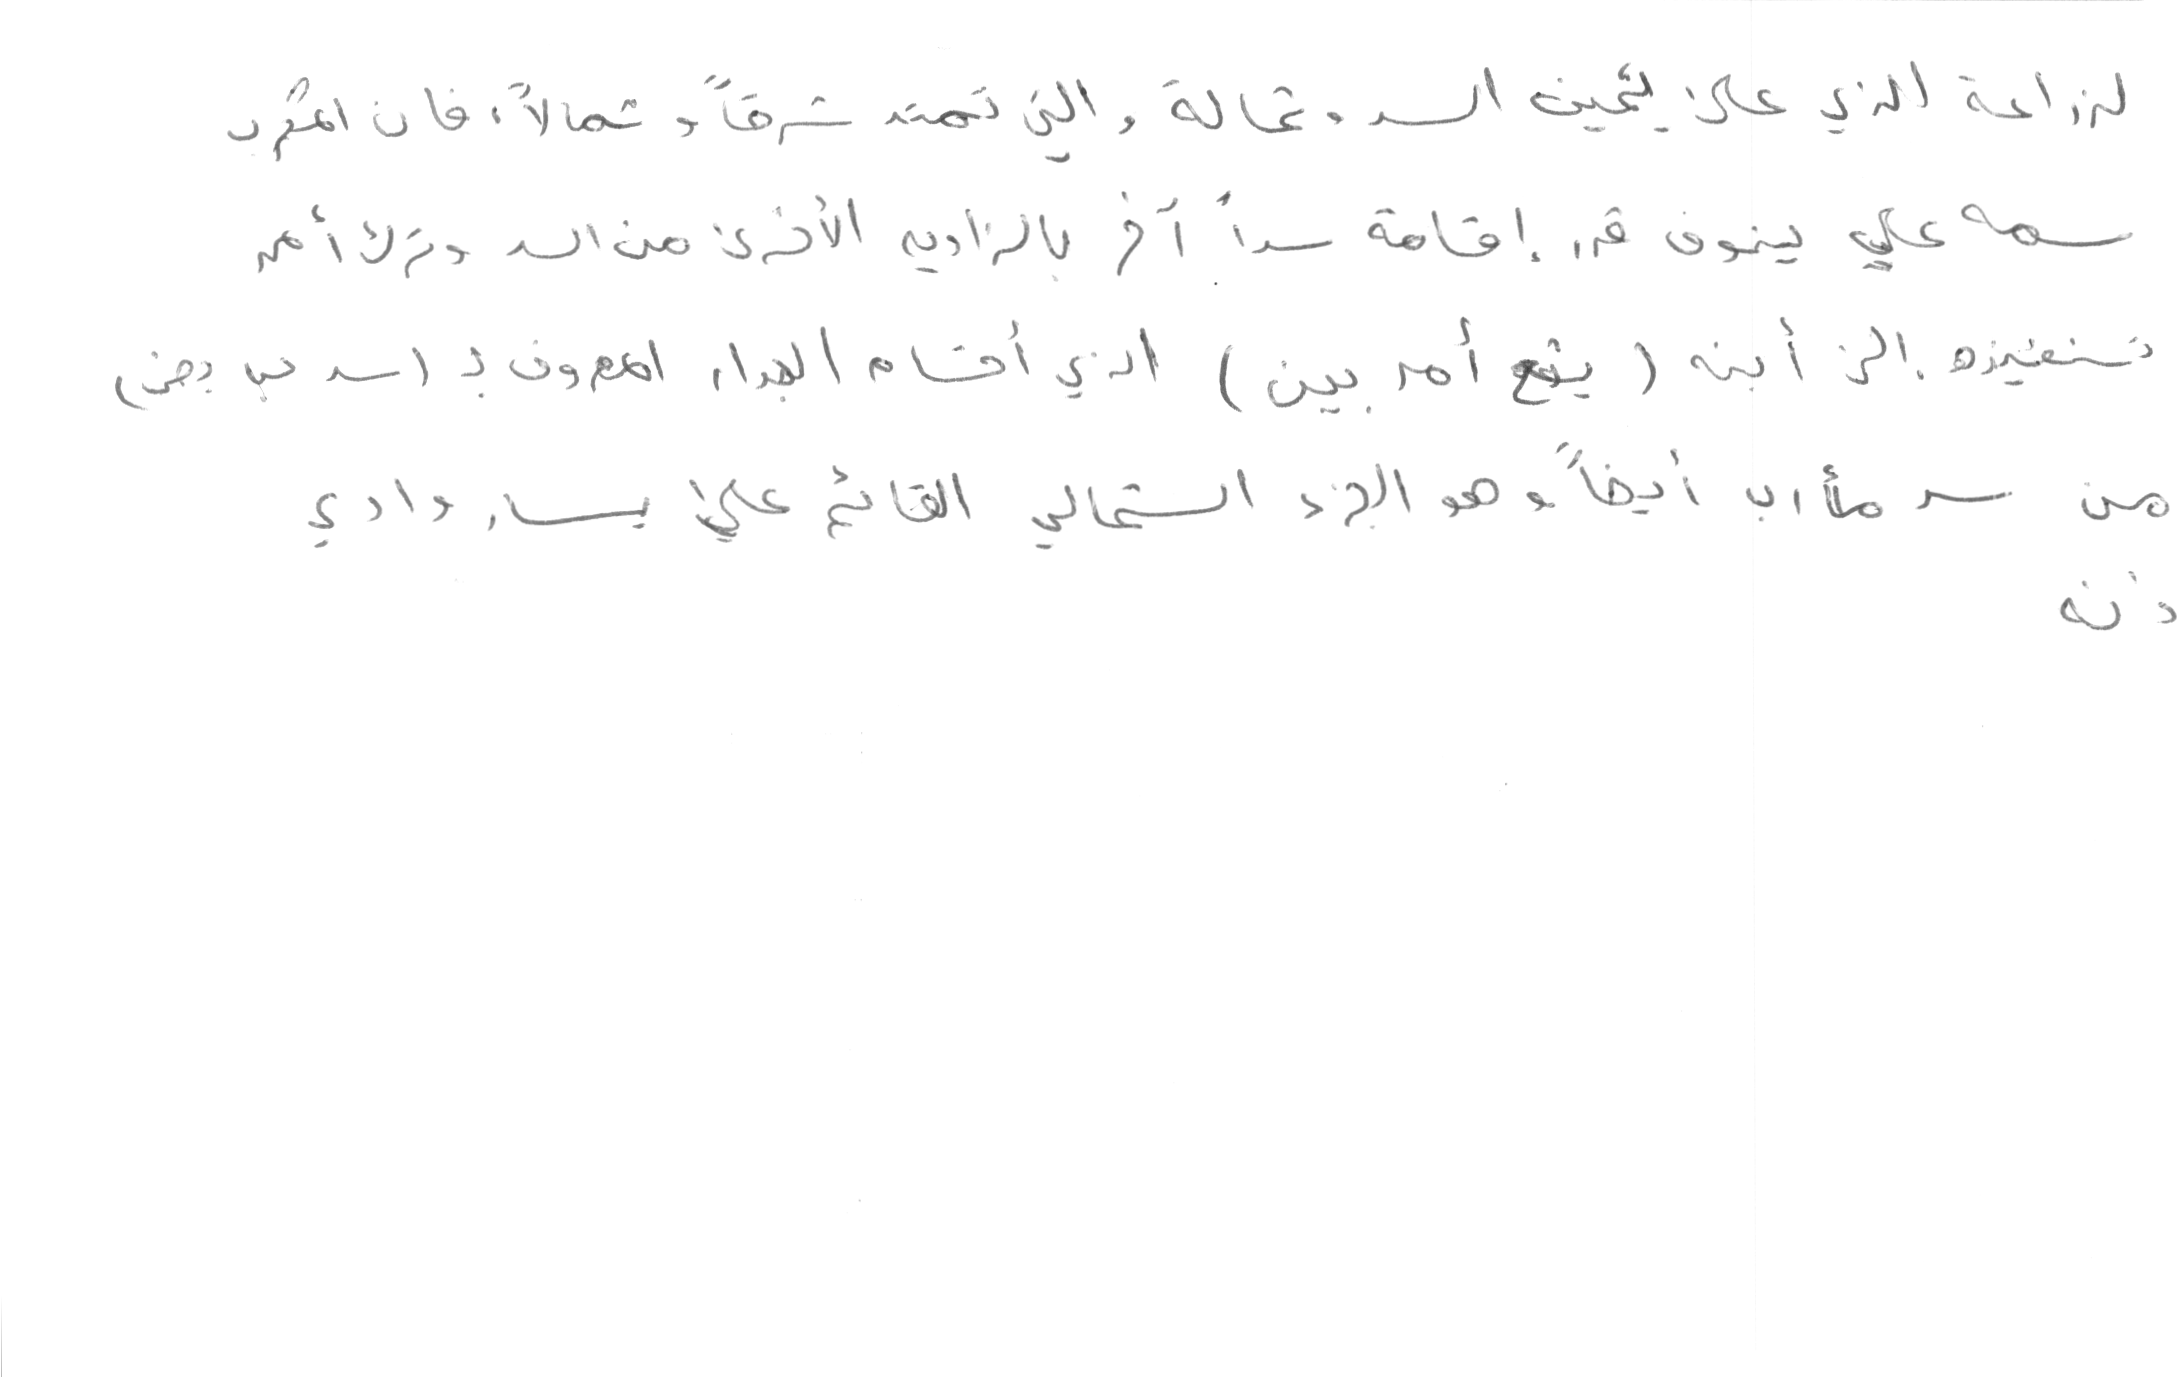 لزراعة الذي على يمين السد وشماله والتي تمتد شرقاً وشمالاً، فان المكرب
سمه علي ينوف قرر إقامة سداً آخر بالزاويه الأخرى من السد وترك أمر
تنفيذه إلى أبنه (يثع أمر بين) الذي أقام الجدار المعروف بـ (سد حبابض)
من سد مأرب أيضاً وهو الجزء الشمالي القائم على يسار وادي
ذنه